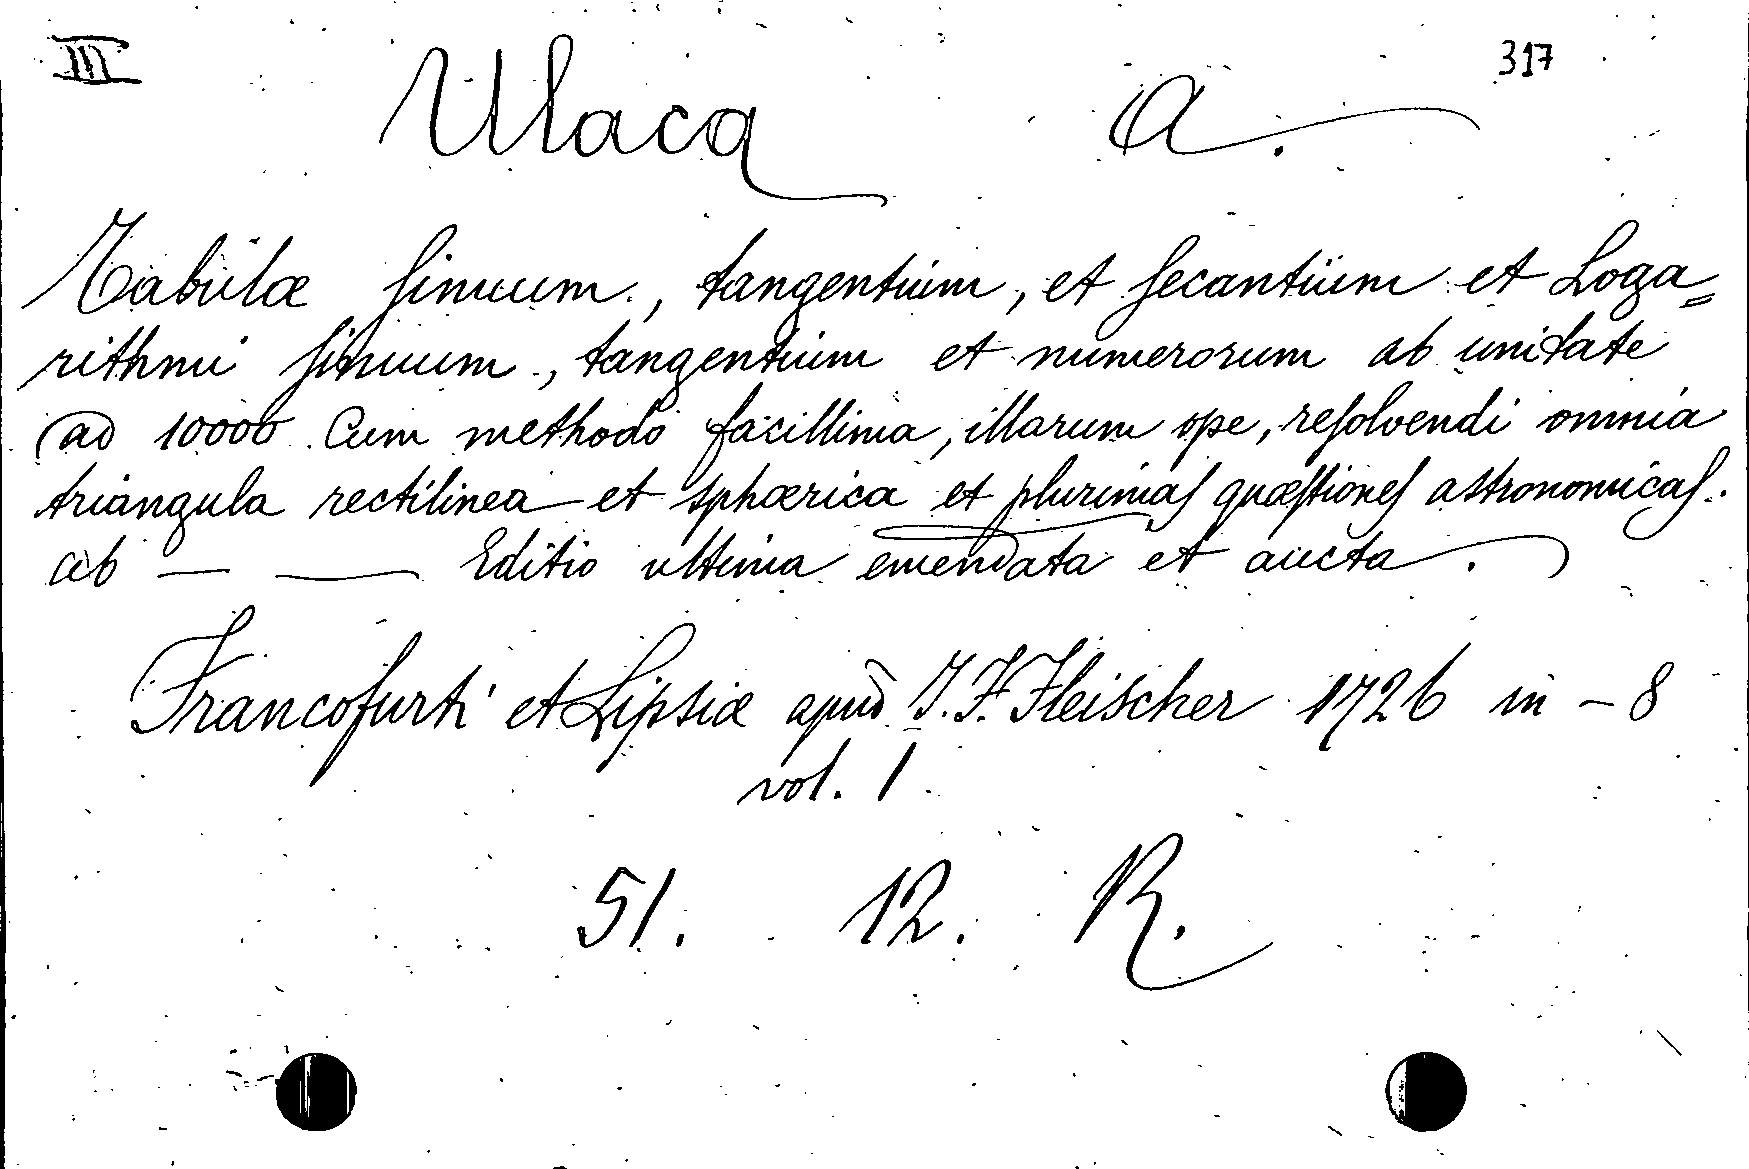 III 317
Ulacq A.
Tabulæ ſinuum, tangentium, et ſecantium et Loga=
rithmi ſinuum, tangentium et numerorum ab unitate
ad 10000. Cum methodo facillima, illarum ope, reſolvendi omnia
triangula rectilinea et sphærica et plurimas quæſtiones astronomicas.
ab — — Editio ultima emendata et aucta.
Francofurti et Lipsiæ apud J. F. Fleischer 1726 in - 8
vol. 1
51. 12. R.